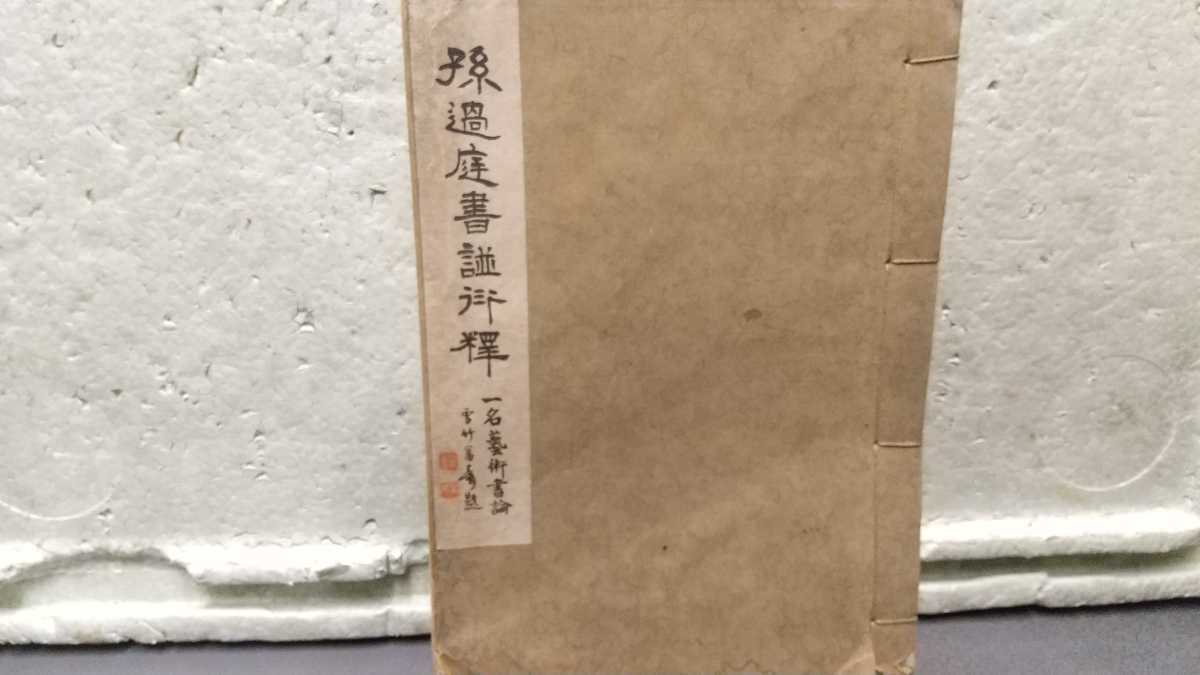 孫過庭書譜衍釋
一名藝術書論
竹題